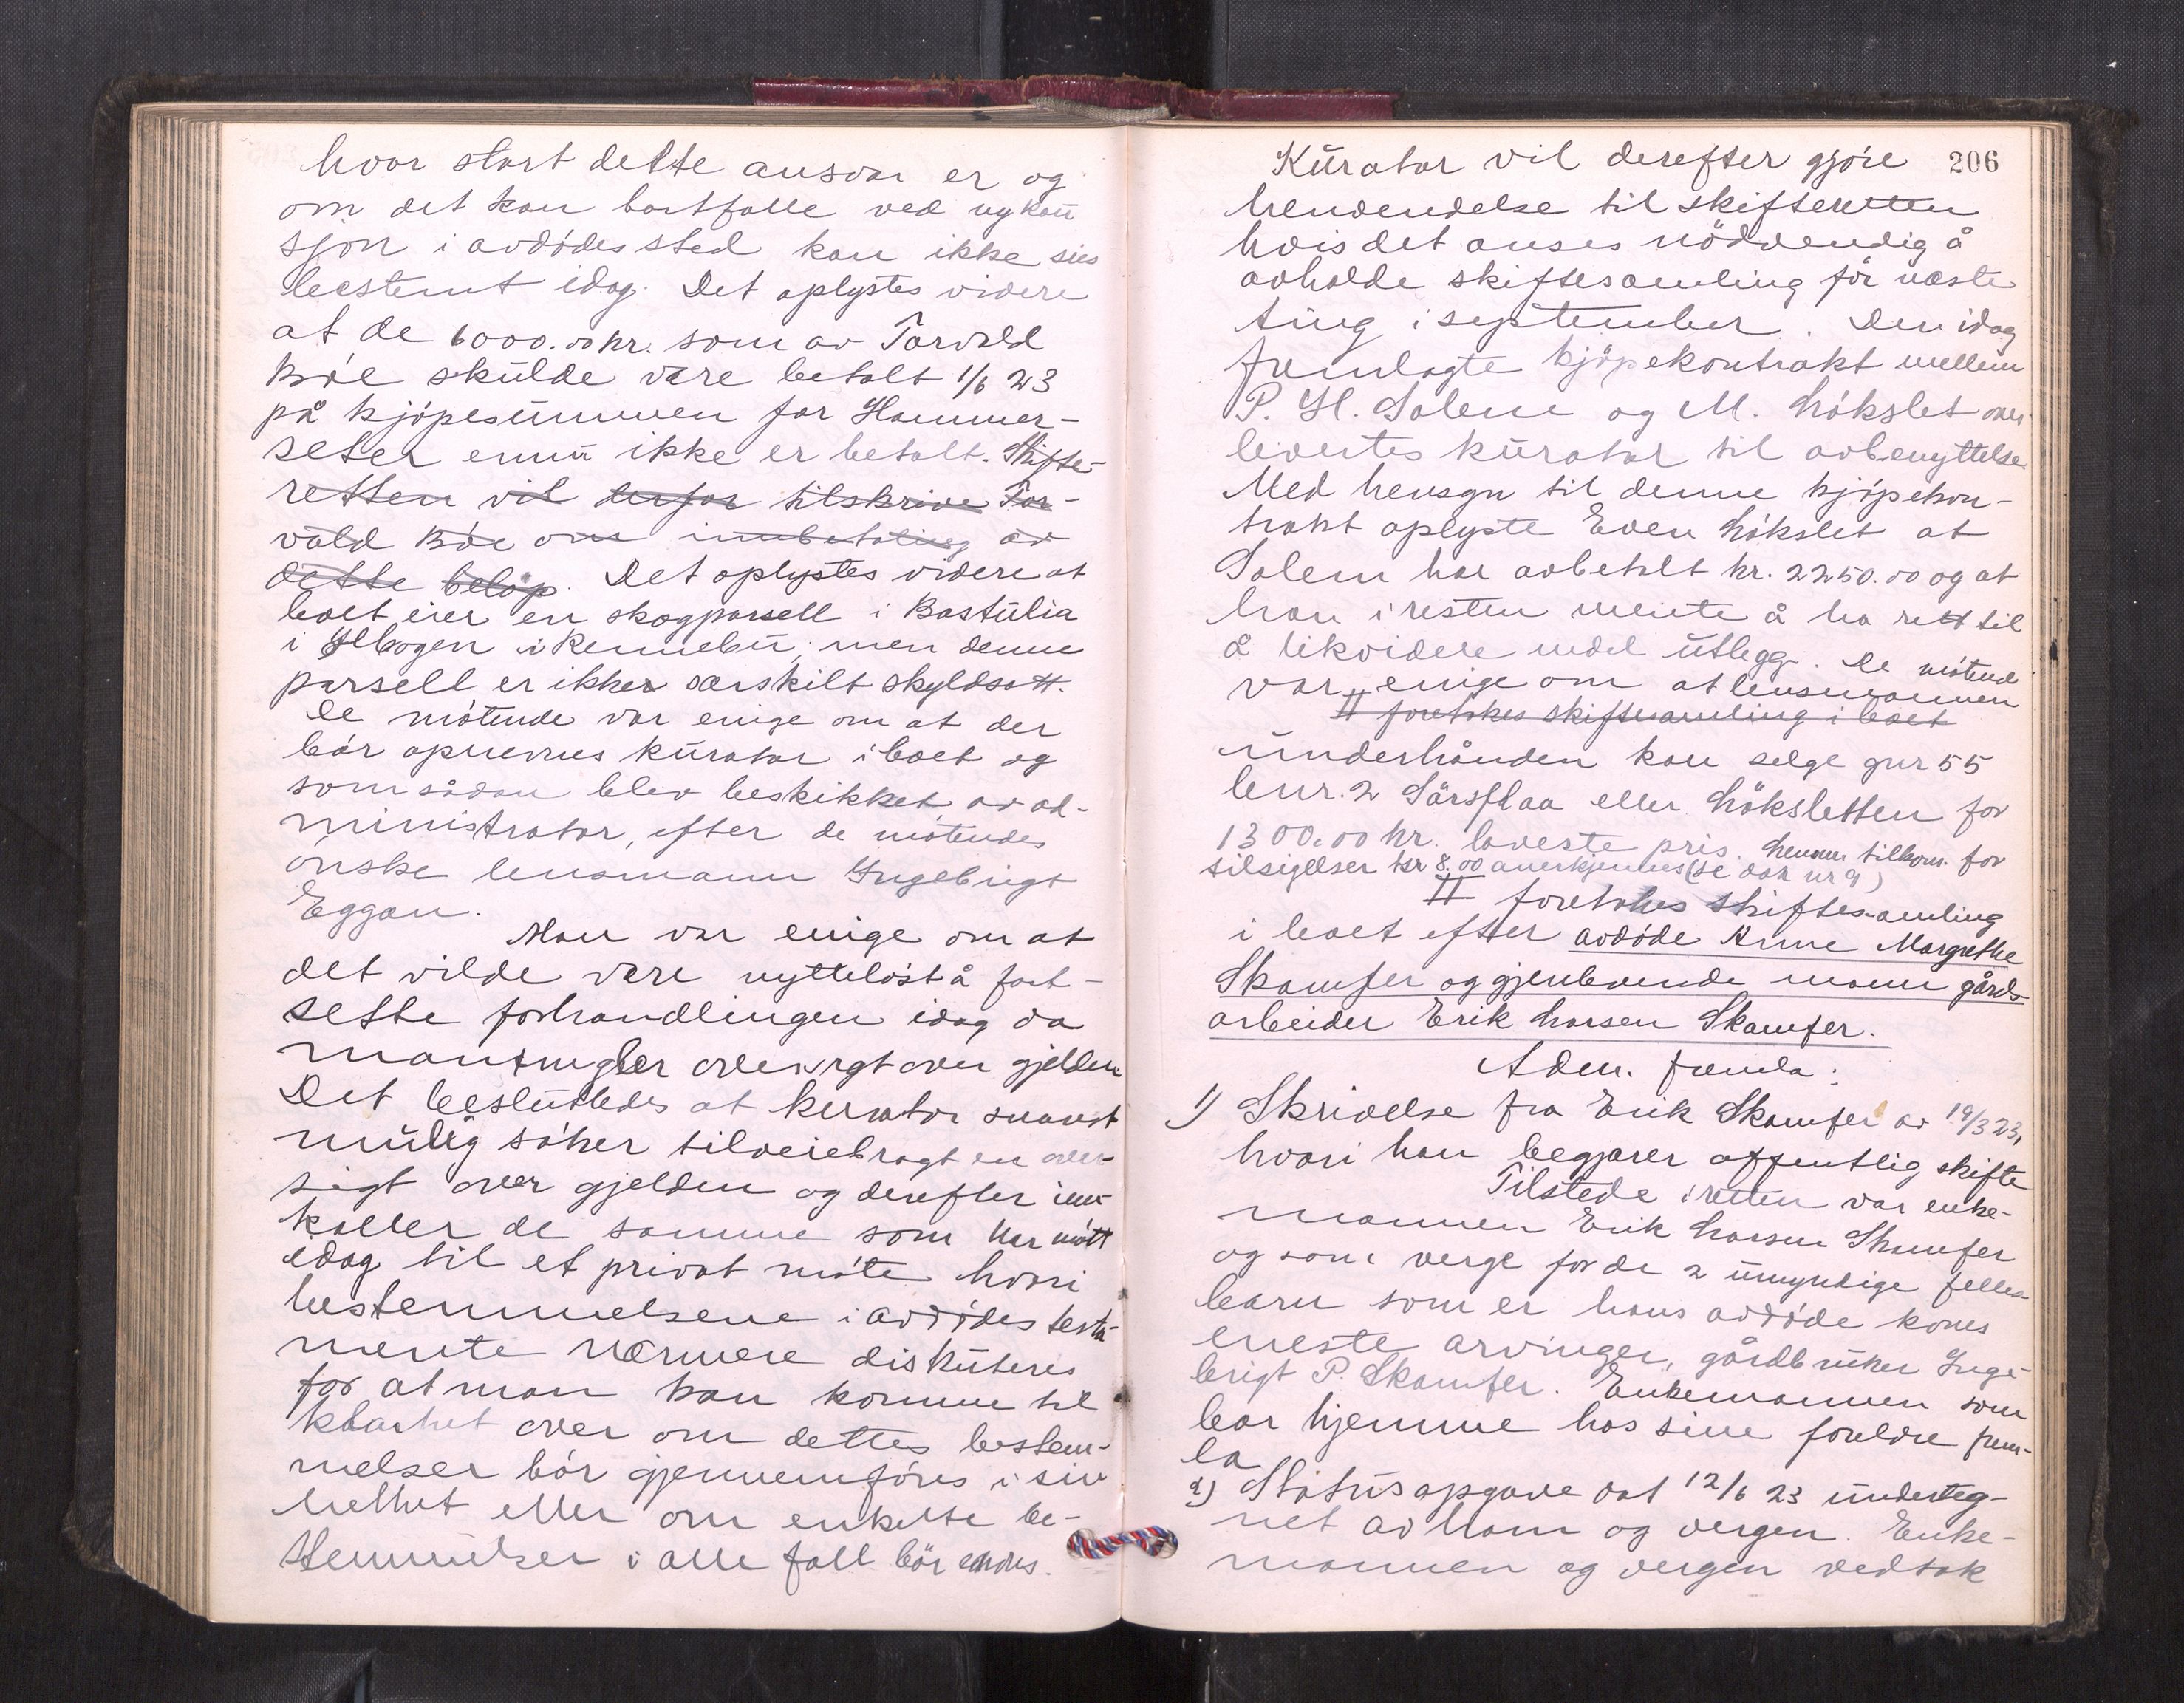 hvor stort dette ansvar er og
om det kan bortfalle ved ny kau
sjon i avdødes sted kan ikke sies
bestemt idag. Det oplystes videre
at de 6000.00 kr. som av Torvald
Böe skulde være betalt 1/6 23
på kjöpesummen for Hammer-
seter ennu ikke er betalt. Skifte-
retten vil derfor tilskrive Tor-
vald Böe om innbetaling av
dette belöp. Det oplystes videre at
boet eier en skogparsell i Bastulia
i Ilbogen i Rennebu, men denne
parsell er ikke særskilt skyldsatt.
De mötende var enige om at der
bör opnevnes kurator i boet og
som sådan blev beskikket av ad-
ministrator, efter de mötendes
önske lensmann Ingebrigt
Eggan.
Man var enige om at
det vilde være nyttelöst å fort-
sette forhandlingen idag da
man mangler oversigt over gjelden
Det besluttedes at kurator snarest
mulig söker tilveiebragt en over-
sigt over gjelden og derefter inn-
kaller de samme som har mött
idag til et privat möte hvori
bestemmelsene i avdödes testa-
mente nærmere diskuteres
for at man kan komme til
klarhet over om dettes bestem-
melser bör gjennemföres i sin
helhet eller om enkelte be-
stemmelser i alle fall bör endres.
206
Kurator vil derefter gjöre
henvendelse til skifteretten
hvis det anses nödvendig å
avholde skiftesamling för næste
ting i september. Den idag
fremlagte kjöpekontrakt mellem
P. H. Solem og M. Lökslet over-
levertes kurator til avbenyttelse.
Med hensyn til denne kjöpekon-
trakt oplyste Even Lökslet at
Solem har avbetalt kr. 2250.00 og at
han i resten mente å ha rett til
å likvidere endel utlegg. De mötende
var enige om at lensmannen
II foretokes skiftesamling i boet
underhånden kan selge gnr 55
bnr. 2 Särsflaa eller Löksletten for
1300.00 kr. laveste pris. Lensm tilkom. for
tilsigelser kr 8.00 anerkjennes (se dok nr 9)
II foretokes skiftesamling
i boet efter avdöde Anne Margrethe
Skamfer og gjenlevende mann gårds-
arbeider Erik Larsen Skamfer.
Adm. fremla:
1) Skrivelse fra Erik Skamfer av 19/3 23,
hvori han begjærer offentlig skifte
Tilstede i retten var enke-
mannen Erik Larsen Skamfer
og som verge for de 2 umyndige felles
barn som er hans avdöde kones
eneste arvinger, gårdbruker Inge-
brigt P. Skamfer. Enkemannen som
bor hjemme hos sine foreldre frem-
la
2) Statusopgave dat 12/6 23 underteg-
net av ham og vergen. Enke-
mannen og vergen vedtok